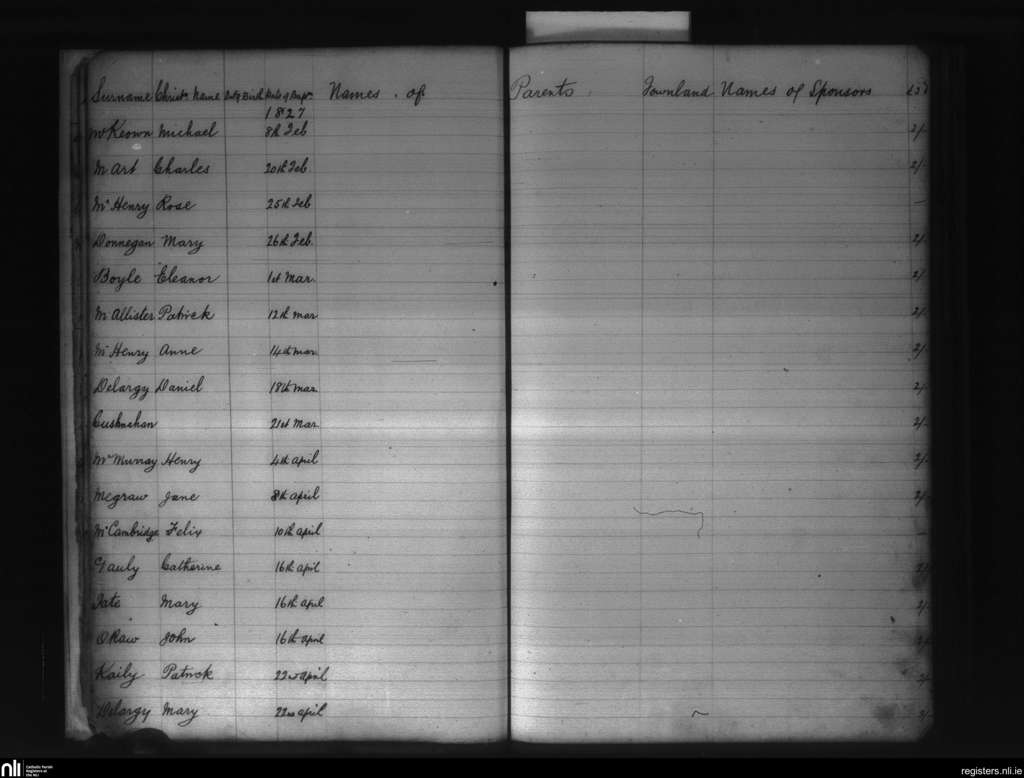 Surname Christn Name Dat of Birth Date of Bapn Names of Parents Townland Names of Sponsors £ s d
1827
McKeown Michael 8th Feb 2/-
McArt Charles 20th Feb 2/-
McHenry Rose 25th Feb –
Donnegan Mary 26th Feb. 2/-
Boyle Eleanor 1st Mar 2/-
McAllister Patrick 12th Mar 2/-
McHenry Anne 14th Mar 2/-
Delargy Daniel 18th Mar 2/-
Cushnahan 21st Mar 2/-
McMurray Henry 4th April 2/-
Megraw Jane 8th April 2/-
McCambridge Felix 10th April –
Gauly Catherine 16th April
Tate Mary 16th April 2/-
O'Kaw John 16th April 2/-
Kaily Patrick 22nd April 2/-
Delargy Mary 22nd April 2/-
nli Catholic Parish Registers at the NLI
registers.nli.ie